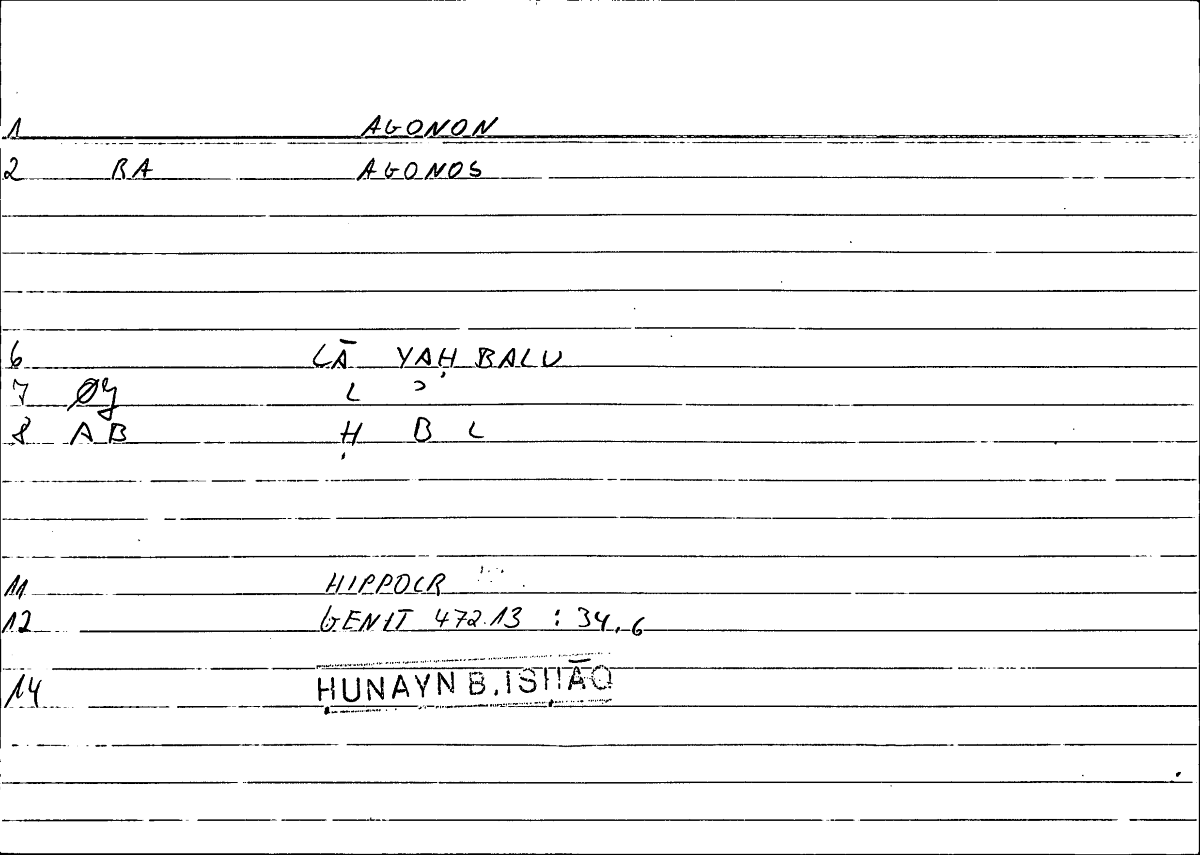 1 AGONON
2 RA AGONOS
6 LĀ YAḤBALU
7 ØY L Ɔ
8 AB Ḥ B L
11 HIPPOCR
12 GENIT 472.13 : 34,6
14 ḤUNAYN B. ISḤĀQ